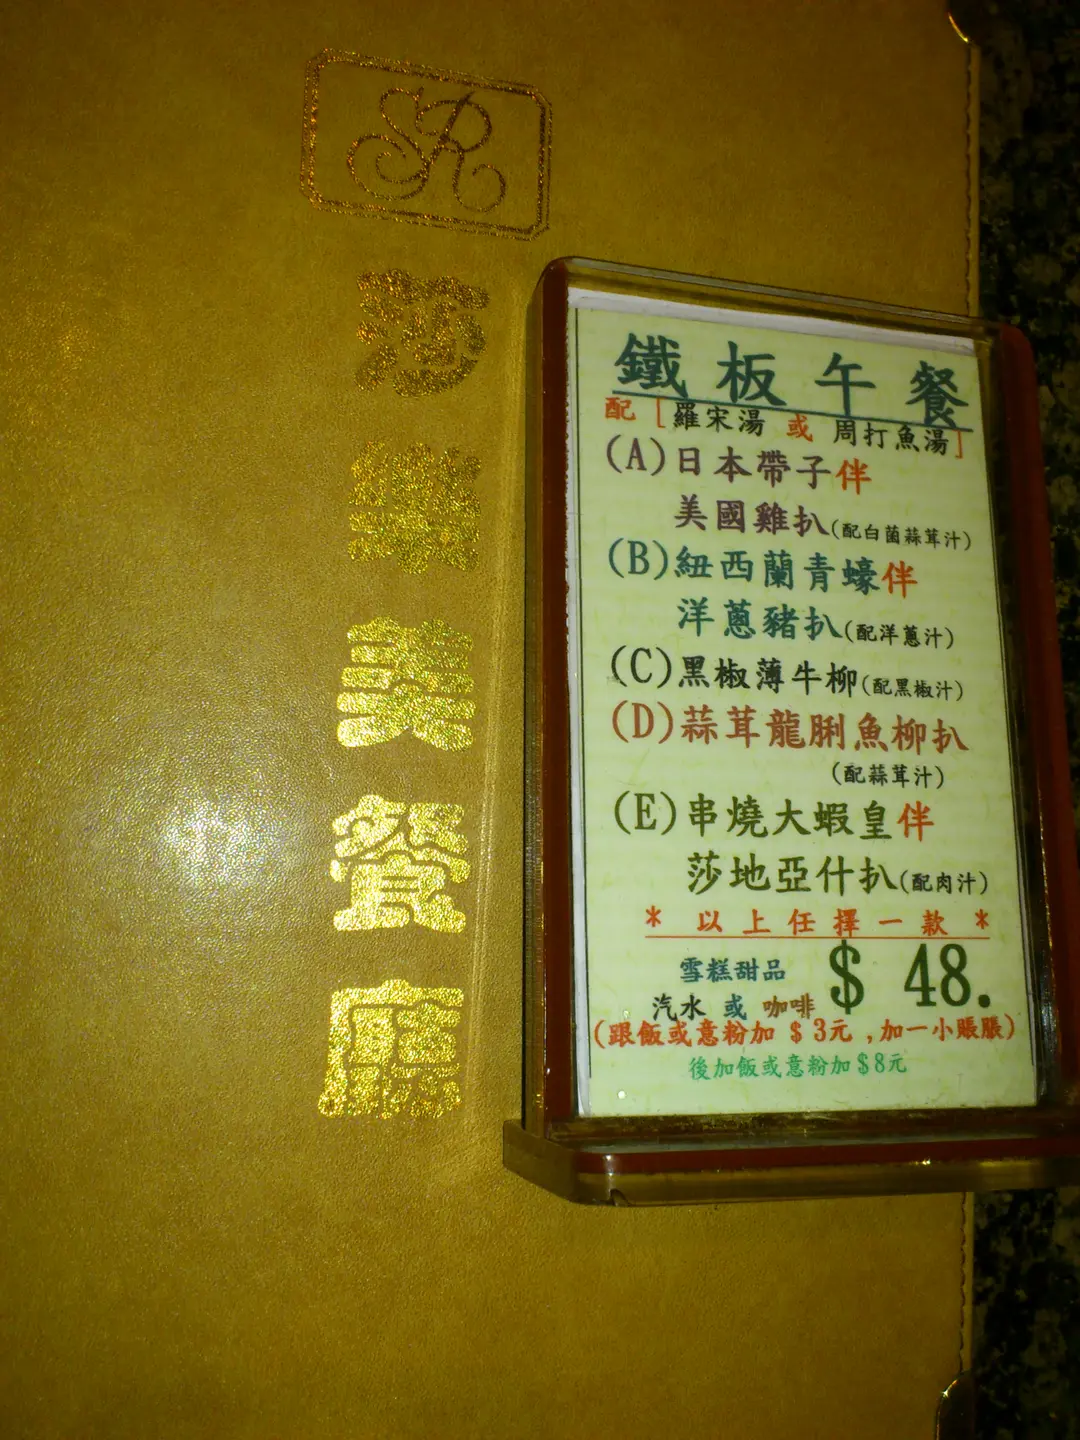 SR
莎樂美餐廳
鐵板午餐
配[羅宋湯 或 周打魚湯]
(A)日本帶子伴
美國雞扒(配白菌蒜茸汁)
(B)紐西蘭青蠔伴
洋蔥豬扒(配洋蔥汁)
(C)黑椒薄牛柳(配黑椒汁)
(D)蒜茸龍脷魚柳扒
(配蒜茸汁)
(E)串燒大蝦皇伴
莎地亞什扒(配肉汁)
* 以上任擇一款 *
雪糕甜品
汽水 或 咖啡
$ 48.
(跟飯或意粉加 $3元 ,加一小賬脹)
後加飯或意粉加$8元